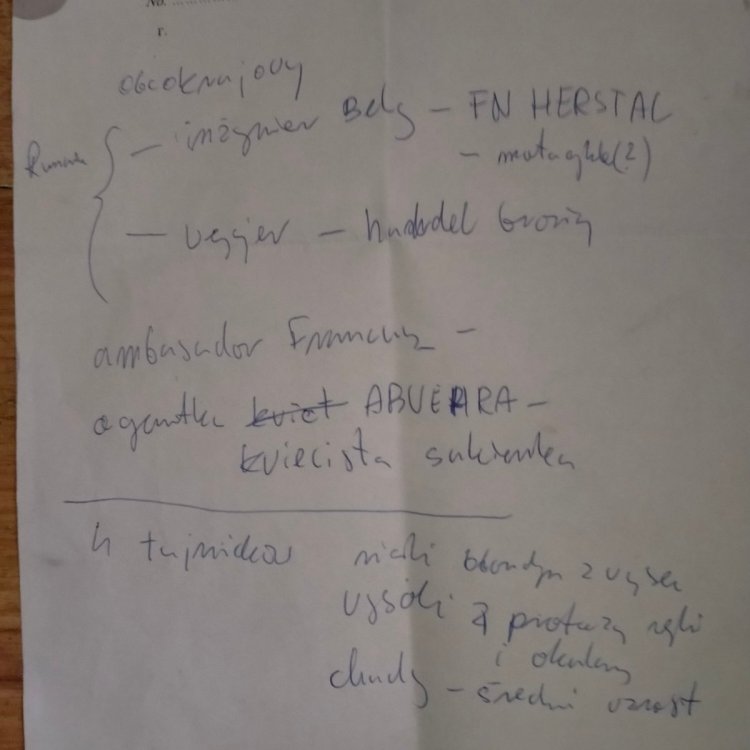 No. ..............
r.
obcokrajowy
— inżynier Belg — FN HERSTAL
— motocykle(?)
— węgier — handel bronią
ambasador Francuz —
agentka kwiet ABVEHRA —
kwiecista sukienka
4 tajników niski blondyn z wąsem
wysoki z protezą ręki
i okulary
chudy — średni wzrost